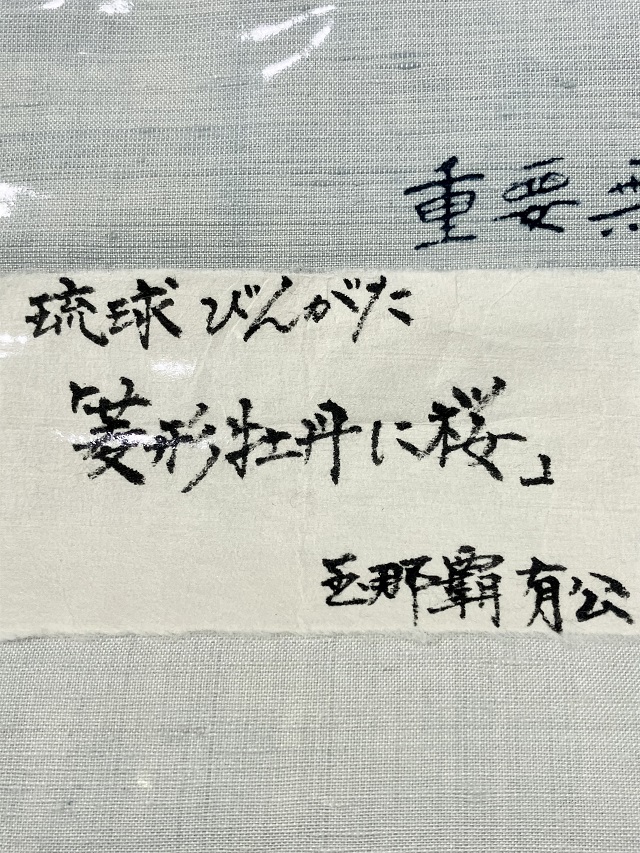 重要無
琉球びんがた
「菱形牡丹に桜」
玉那覇有公